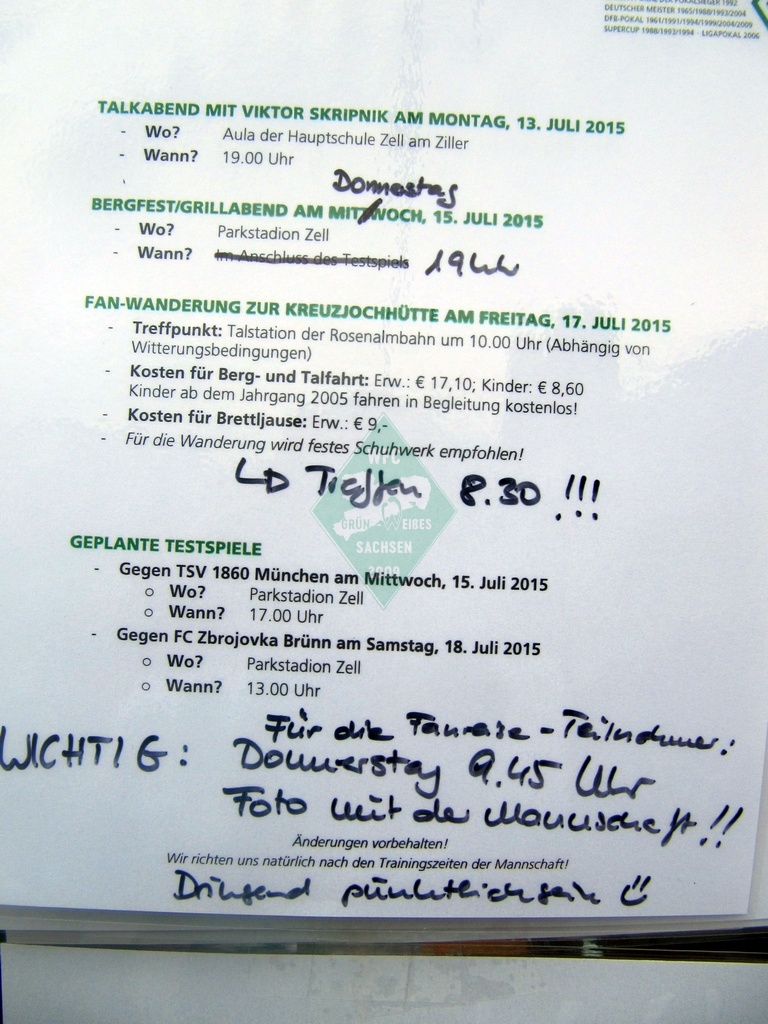 DEUTSCHER MEISTER 1965/1988/1993/2004
DFB-POKAL 1961/1991/1994/1999/2004/2009
SUPERCUP 1988/1993/1994 - LIGAPOKAL 2006
TALKABEND MIT VIKTOR SKRIPNIK AM MONTAG, 13. JULI 2015
- Wo? Aula der Hauptschule Zell am Ziller
- Wann? 19.00 Uhr
Donnerstag
BERGFEST/GRILLABEND AM MITTWOCH, 15. JULI 2015
- Wo? Parkstadion Zell
- Wann? Im Anschluss des Testspiels 19 Uhr
FAN-WANDERUNG ZUR KREUZJOCHHÜTTE AM FREITAG, 17. JULI 2015
- Treffpunkt: Talstation der Rosenalmbahn um 10.00 Uhr (Abhängig von
Witterungsbedingungen)
- Kosten für Berg- und Talfahrt: Erw.: € 17,10; Kinder: € 8,60
Kinder ab dem Jahrgang 2005 fahren in Begleitung kostenlos!
- Kosten für Brettljause: Erw.: € 9,-
- Für die Wanderung wird festes Schuhwerk empfohlen!
↳ Treffen 8.30 !!!
WFC
GRÜN-WEIßES
SACHSEN
2009
GEPLANTE TESTSPIELE
- Gegen TSV 1860 München am Mittwoch, 15. Juli 2015
○ Wo? Parkstadion Zell
○ Wann? 17.00 Uhr
- Gegen FC Zbrojovka Brünn am Samstag, 18. Juli 2015
○ Wo? Parkstadion Zell
○ Wann? 13.00 Uhr
WICHTIG: Für die Fanreise-Teilnehmer:
Donnerstag 9.45 Uhr
Foto mit der Mannschaft!!
Änderungen vorbehalten!
Wir richten uns natürlich nach den Trainingszeiten der Mannschaft!
Dringend pünktlich sein ☺